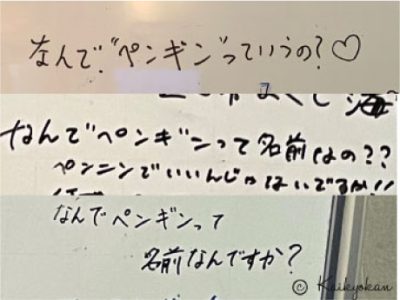 なんで"ペンギン"っていうの?♡
なんで"ペンギンって名前なの??
ペンニンでいいんじゃないですか!!
なんでペンギンって
名前なんですか?
© Kaikyokan